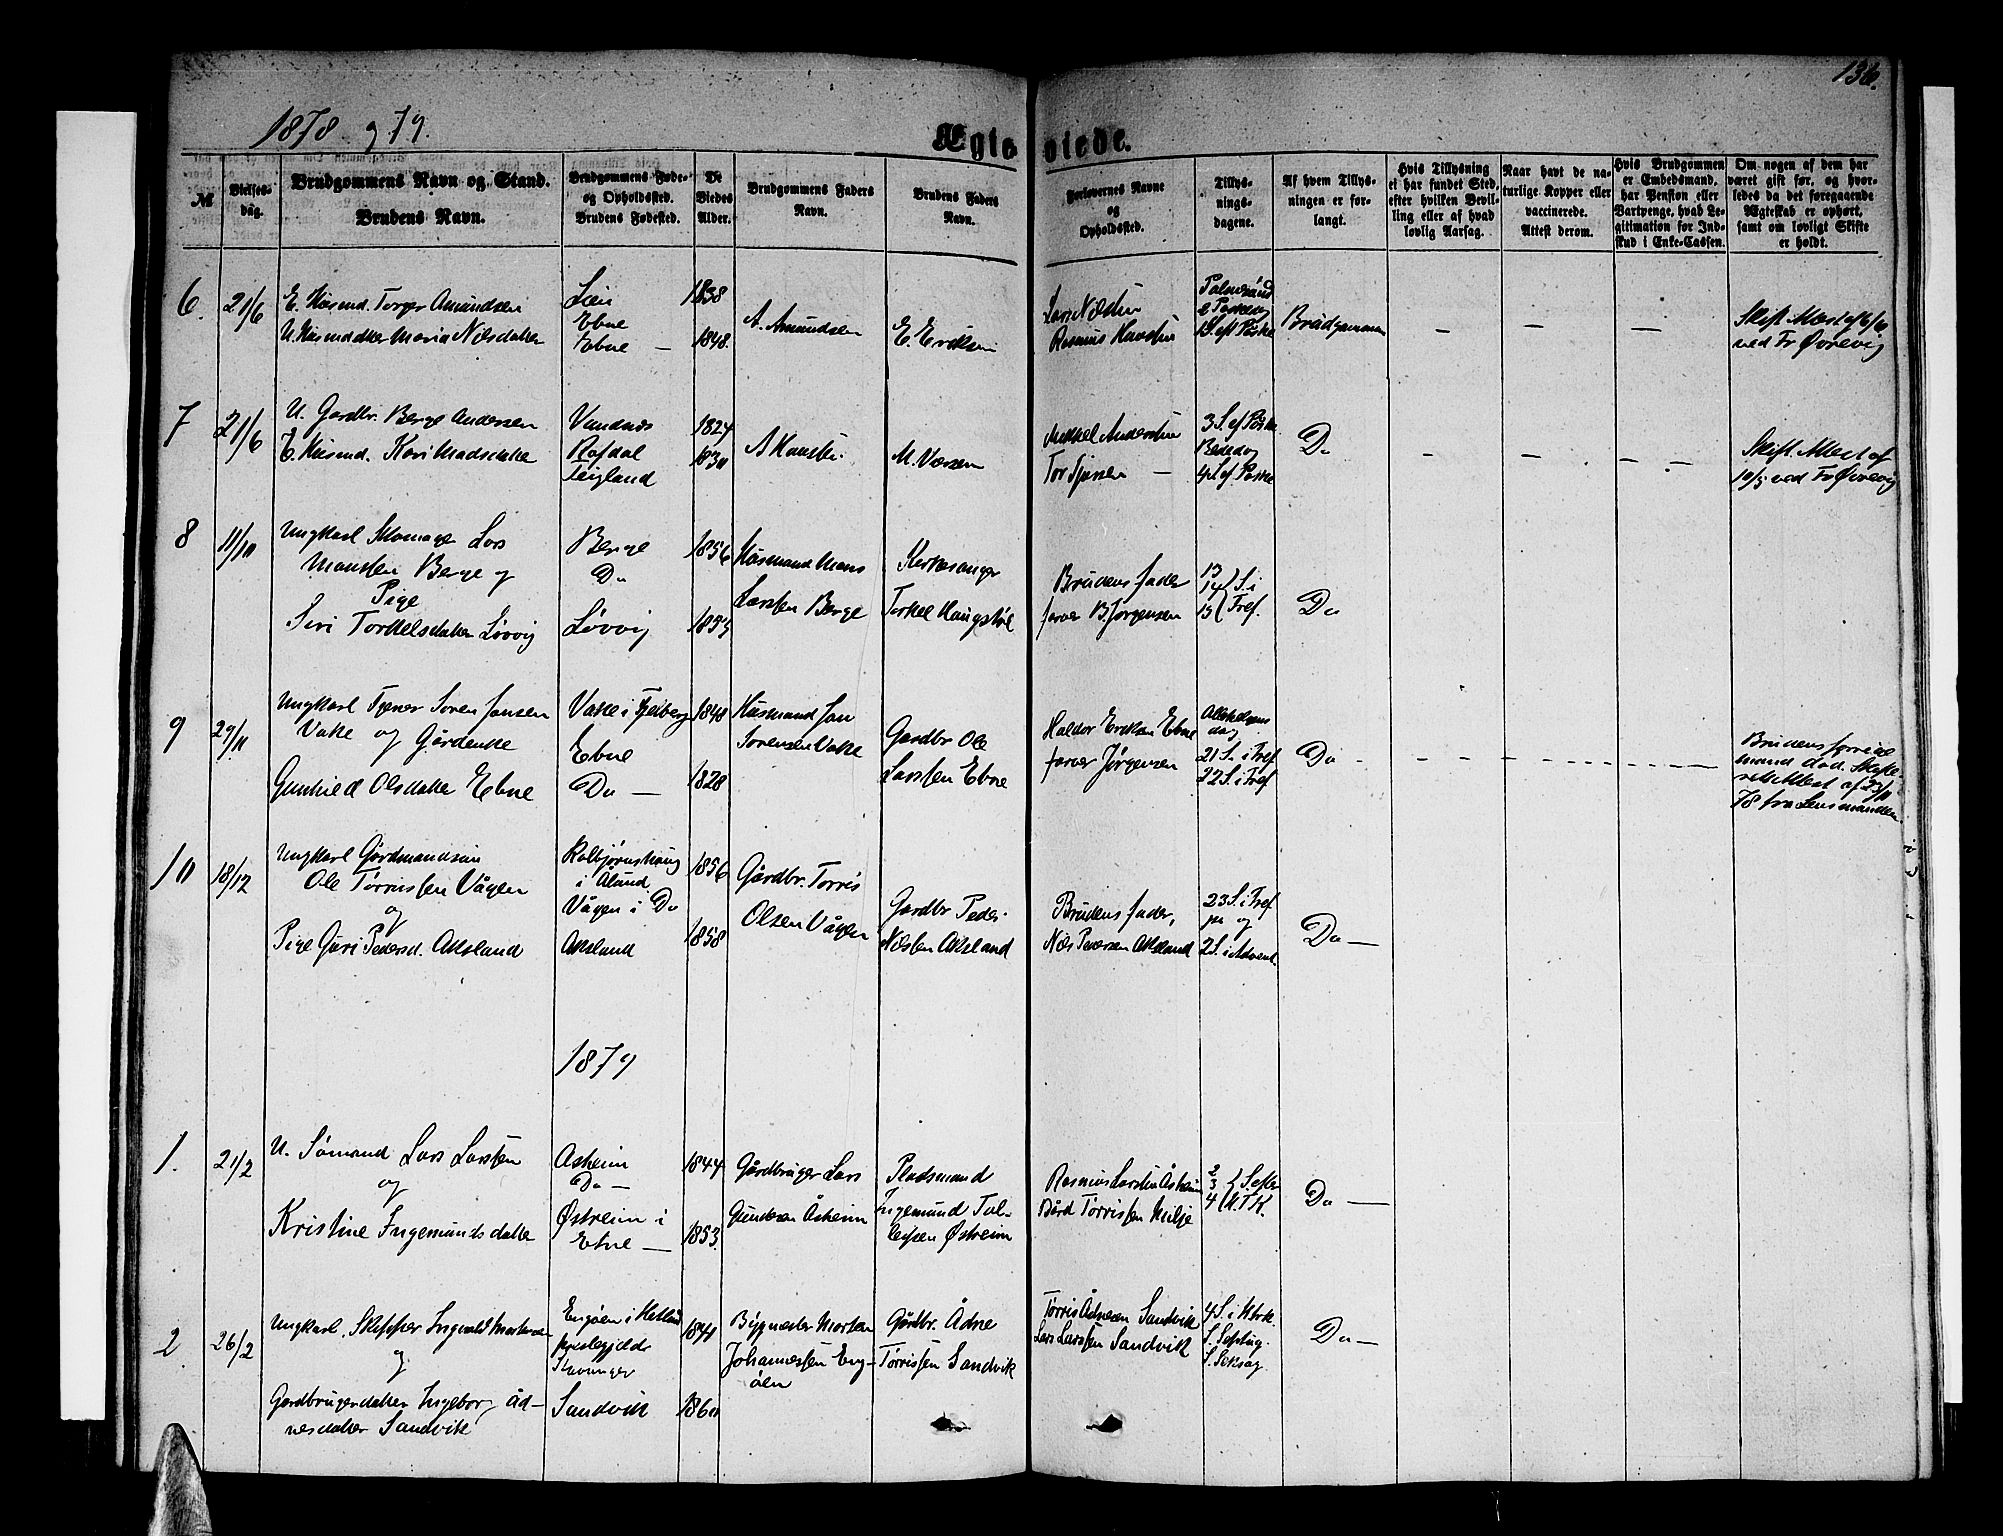 136.
1878 og 79.
Ægteviede.
№
Vielses-
dag.
Brudgommens Navn og Stand.
Brudens Navn.
Brudgommens Føde-
og Opholdssted.
Brudens Fødested.
De
Viedes
Alder.
Brudgommens Faders
Navn.
Brudens Faders
Navn.
Forlovernes Navne
og
Opholdssted.
Tillys-
nings-
dagene.
Af hvem Tillys-
ningen er for-
langt.
Hvis Tillysning
ei har fundet Sted,
efter hvilken Bevil-
ling eller af hvad
lovlig Aarsag.
Naar havt de na-
turlige Kopper eller
vaccinerede.
Attest derom.
Hvis Brudgommen
er Embedsmand,
har Pension eller
Vartpenge, hvad Le-
gitimation for Ind-
skud i Enke-Cassen.
Om nogen af dem har
været gift før, og hvor-
ledes da det foregaaende
Ægteskab er ophørt,
samt om lovligt Skifte
er holdt.
6.
21/6
E. Husmd. Torger Amundsen
U. Husmddtter Maria Nilsdatter
Lien
Ebne
Ebne —
1838
1848.
A. Amundsen
E. Eriksen
Lars Nilsen
Rasmus Hansen
Palmesönd
2 Paskedag
1 S. ef Påske
Brudgommen
— — —
Skift. Attest af 6/6
ved Fr Øvrevig
7
21/6
U. Gardbr. Berge Andersen
E. Husmd. Kari Madsdatter
Vandnes
Rafdal
Teigland
1824
1830
A Hansen
M. Larsen
Mikkel Andersen
Tor Sjursen —
3 S. ef Påske
Bededag
4 S. ef. Påske
Do
— — — —
Skift. Attest af
10/5 ved Fr Øvrevig
8
11/10
Ungkarl Skomager Lars
Monsen Berge og
Pige
Siri Torkelsdatter Løvvig
Berge
Do
Løvvig
1856
1853
Husmand Mons
Larsen Berge
Kirkesanger
Torkel Haugstøl
Brudens fader
farver B. Jørgensen
13
14 S. i
15 Tref.
Do
9
29/11
Ungkarl Tjener Soren Jansen
Vake og Gårdenke
Gunhild Olsdatter Ebne
Vake i Fjelberg
Ebne
Do —
1848
1828
Husmand Jan
Sorensen Vake
Gardbr Ole
Larsen Ebne
Haldor Eriksen Ebne
farver Jørgensen
Allehelgens
dag
21 S. i Tref
22 S. i Tref
Do
Brudens forrige
mand død. Skifte-
rettattest af 23/11
78 fra Lensmanden.
10
18/12
Ungkarl Gårdmandssøn
Ole Tørrissen Vågen
og
Pige Guri Pedersd. Aksland
Kolbjørnshaug
i Ølund
Vågen i Do
Aksland
1856
1858
Gårdbr. Torris
Olsen Vågen
Gardbr Peder
Nilsen Aksland
Brudens fader,
Nils Pedersen Aksland
23 S. i Tref
og
2 S. i Advent.
Do —
1879
1.
21/2
U. Sømand Lars Larsen
og
Kristine Ingemundsdatter
Asheim
Do —
Østreim i
Ebne —
1844
1853.
Gårdbruger Lars
Gundersen Åsheim
Pladsmand
Ingemund Tol-
leifsen Østreim
Rasmus Larsen Åsheim
Bård Tørrissen Milje
2
3 S. efter
4 H.T.K.
Do —
2
26/2
Ungkarl. Skipper Ingvald Mortensen
og
Gardbrugerdatter Ingeborg Åd-
nesdatter Sandvik
Engøen i Hetland
prestegjeld
Stavanger
Sandvik
1860
Bygmester Morten
Johannessen Eng-
øen
Gårdbr. Ådne
Tørrissen Sandvik
Tørris Ådnesen Sandvik
Lars Larssen Sandvik
S. Septuag.
S. Seksag.
Do —